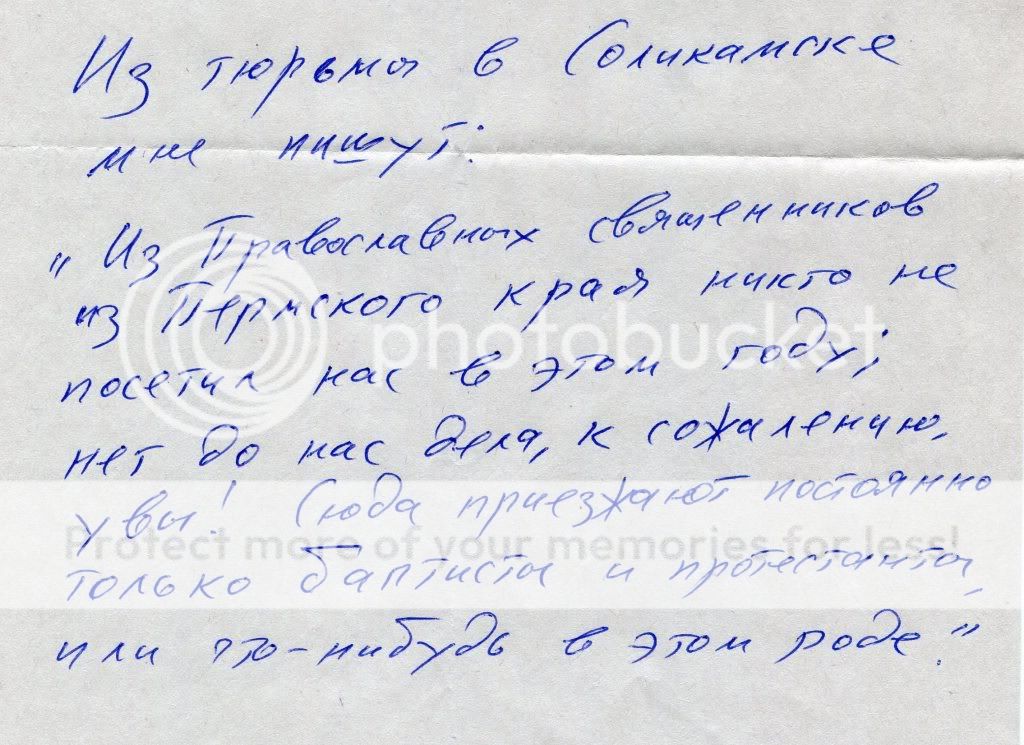 Из тюрьмы в Соликамске
мне пишут:
„Из Православных священников
из Пермского края никто не
посетил нас в этом году;
нет до нас дела, к сожалению,
увы! Сюда приезжают постоянно
только баптисты и протестанты,
или что-нибудь в этом роде."
photobucket
Protect more of your memories for less!